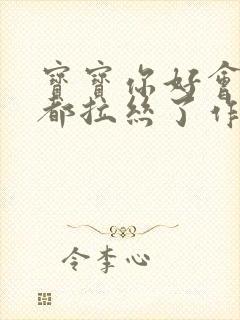 寶寶你好會
都拉絲了作
令李心